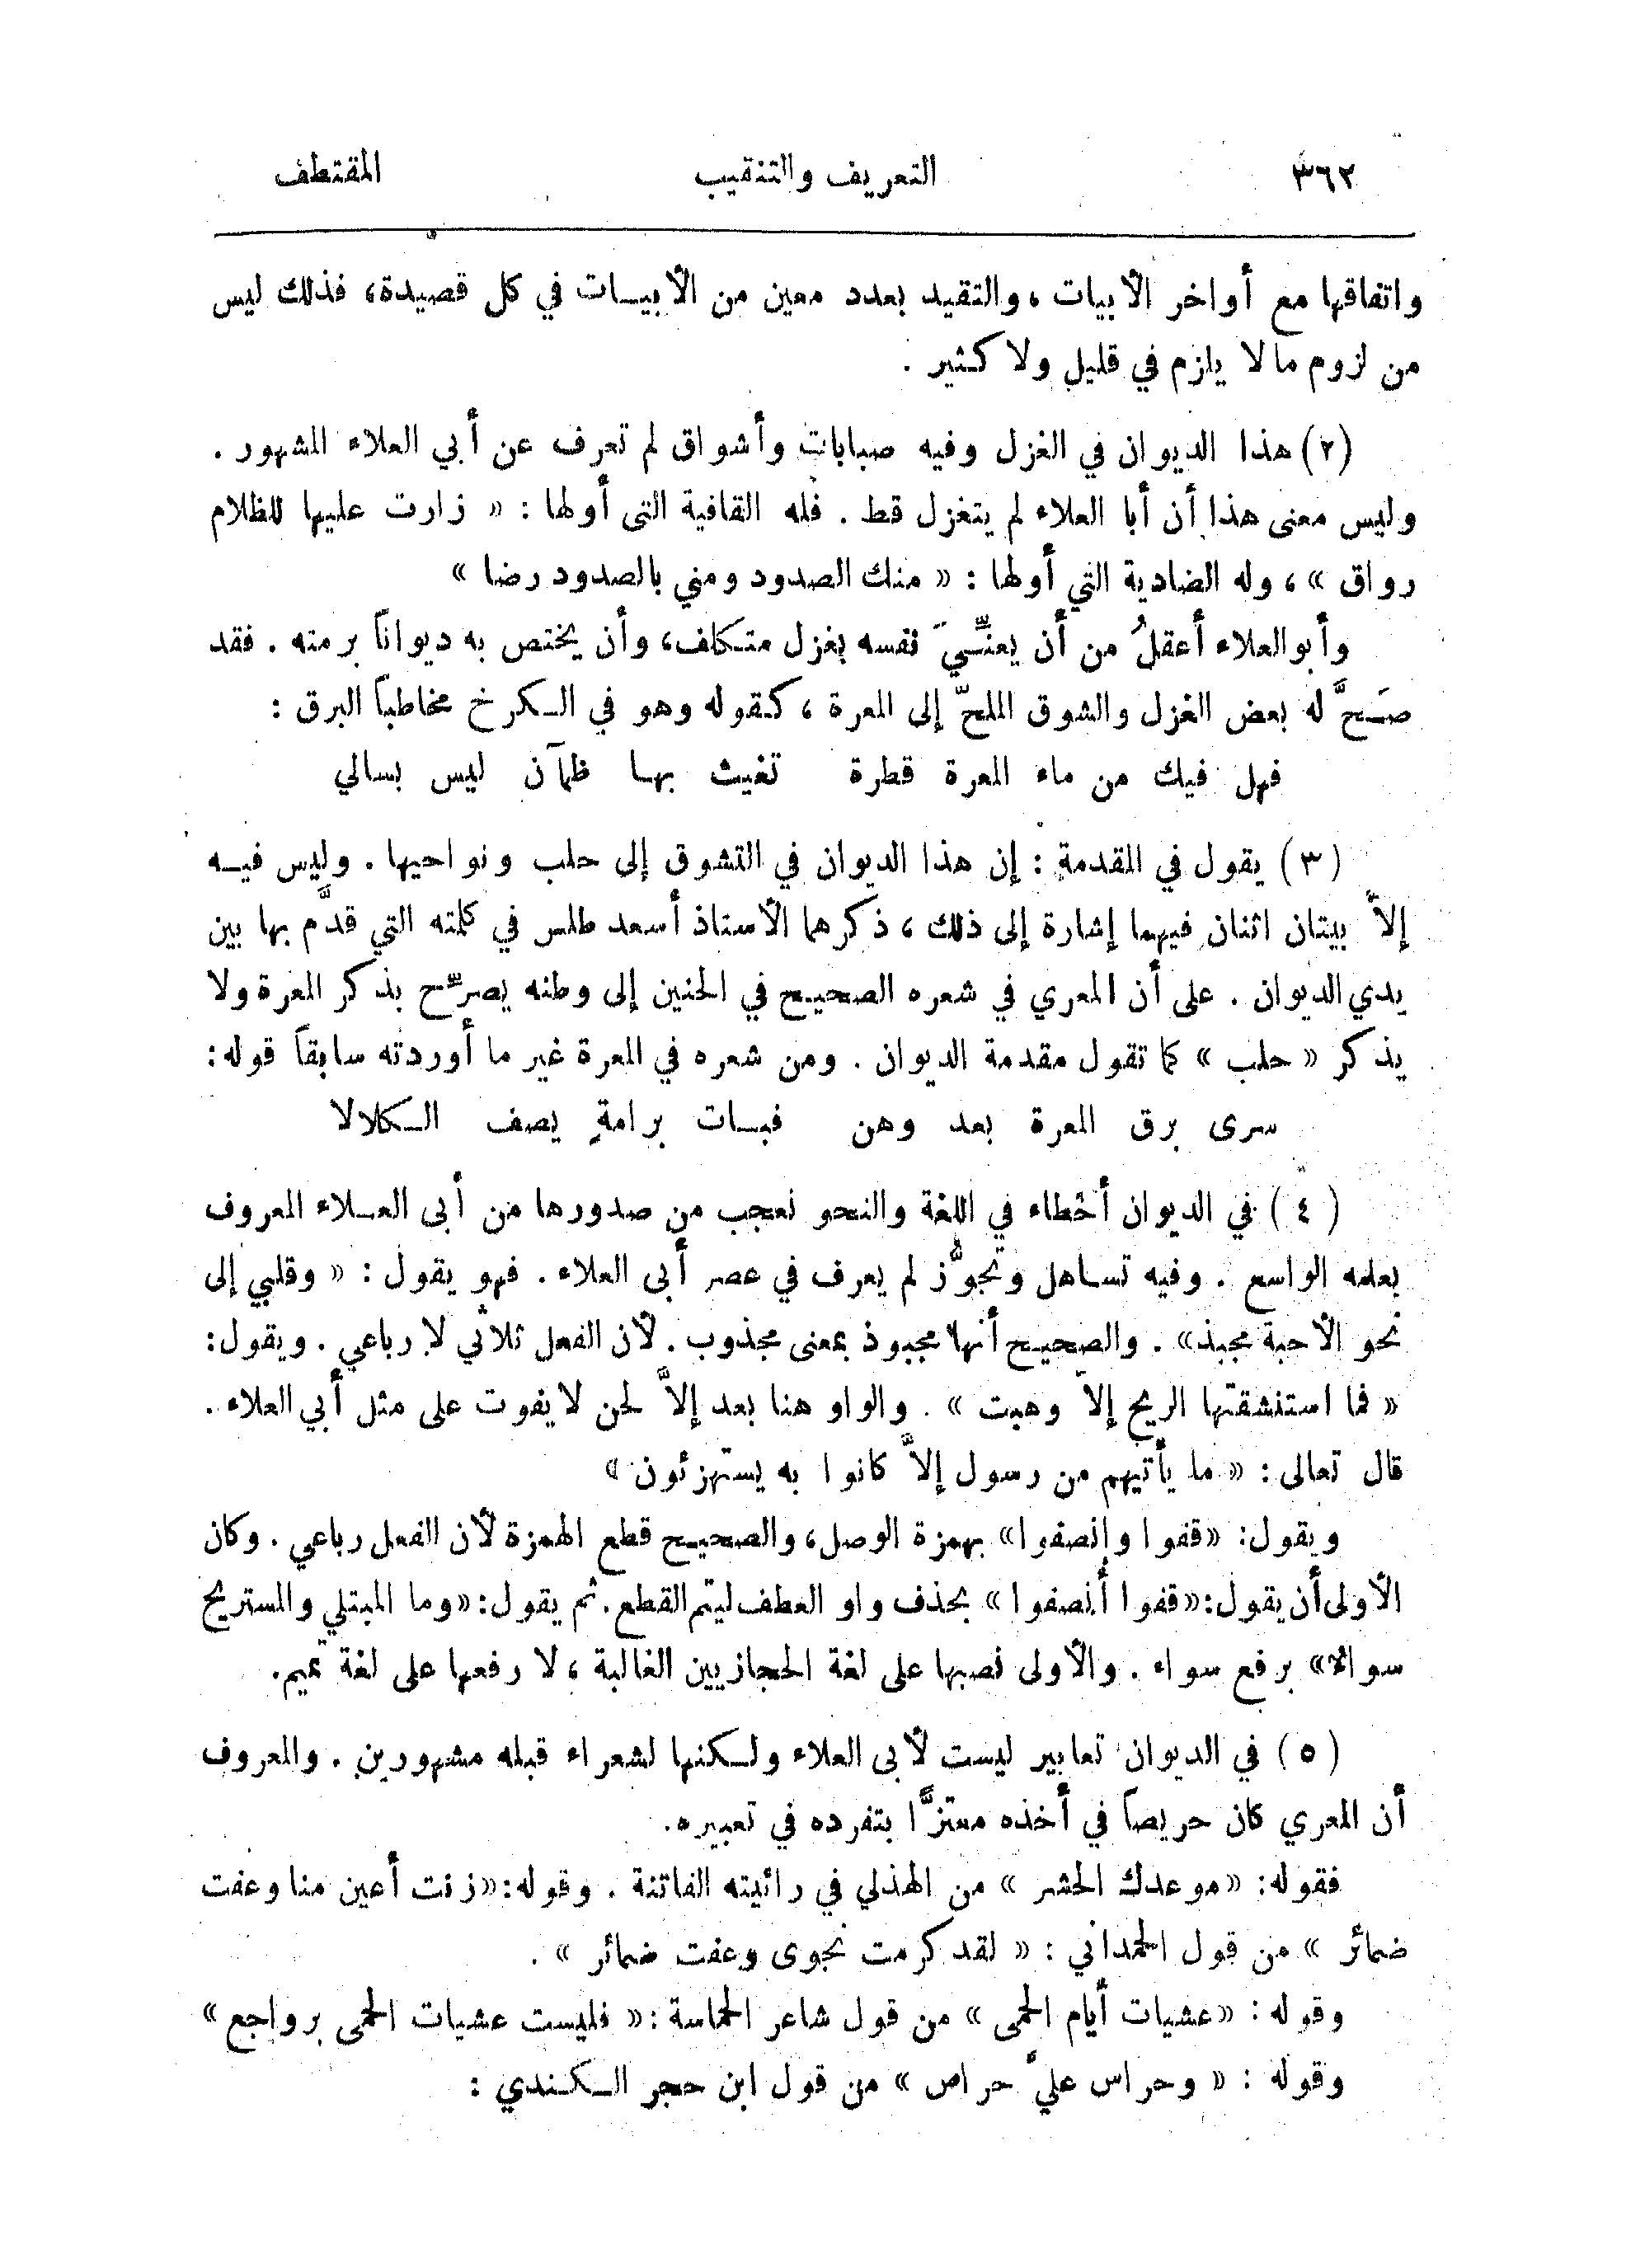 ٣٦٢ التعريف والتنقيب المقتطف
واتفاقها مع أواخر الأبيات ، والتقيد بعدد معين من الأبيات في كل قصيدة، فذلك ليس
من لزوم ما لا يلزم في قليل ولا كثير .
(٢) هذا الديوان في الغزل وفيه صبابات وأشواق لم تعرف عن أبي العلاء المشهور .
وليس معنى هذا أن أبا العلاء لم يتغزل قط . فله القافية التى أولها : « زارت عليها للظلام
رواق » ، وله الضادية التي أولها : « منك الصدود ومني بالصدود رضا »
وأبو العلاء أعقلُ من أن يعنِّيَ نفسه بغزل متكلف، وأن يختص به ديواناً برمته . فقد
صَحَّ له بعض الغزل والشوق الملحّ إلى المعرة ، كقوله وهو في الكرخ مخاطباً البرق :
فهل فيك من ماء المعرة قطرة تغيث بها ظمآن ليس بسالي
(٣) يقول في المقدمة : إن هذا الديوان في التشوق إلى حلب ونواحيها . وليس فيه
إلاَّ بيتان اثنان فيهما إشارة إلى ذلك ، ذكرهما الأستاذ أسعد طلس في كلمته التي قدَّم بها بين
يدي الديوان . على أن المعري في شعره الصحيح في الحنين إلى وطنه يصرِّح بذكر المعرة ولا
يذكر « حلب » كما تقول مقدمة الديوان . ومن شعره في المعرة غير ما أوردته سابقاً قوله:
سرى برق المعرة بعد وهن فبات برامةٍ يصف الكلالا
(٤) في الديوان أخطاء في اللغة والنحو نعجب من صدورها من أبى العلاء المعروف
بعلمه الواسع . وفيه تساهل وتجوُّز لم يعرف في عصر أبى العلاء . فهو يقول : « وقلبي إلى
نحو الأحبة مجبذ» . والصحيح أنها مجبوذ بمعنى مجذوب . لأن الفعل ثلاثي لا رباعي . ويقول:
« فما استنشقتها الريح إلاّ وهبت » . والواو هنا بعد إلاَّ لحن لا يفوت على مثل أبي العلاء .
قال تعالى : « ما يأتيهم من رسول إلاَّ كانوا به يستهزئون »
ويقول: «قفوا وانصفوا» بهمزة الوصل، والصحيح قطع الهمزة لأن الفعل رباعي . وكان
الأولى أن يقول: «قفوا أنصفوا» بحذف واو العطف ليتم القطع. ثم يقول: «وما المبتلي والمستريح
سواءٌ» برفع سواء . والأولى نصبها على لغة الحجازيين الغالبة ، لا رفعها على لغة تميم.
(٥) في الديوان تعابير ليست لأبى العلاء ولكنها لشعراء قبله مشهورين . والمعروف
أن المعري كان حريصاً في أخذه معتزًّا بتفرده في تعبيره.
فقوله: «موعدك الحشر » من الهذلي في رائيته الفاتنة . وقوله: «زنت أعين منا وعفت
ضمائر » من قول الحمداني : « لقد كرمت نجوى وعفت ضمائر » .
وقوله : «عشيات أيام الحمى » من قول شاعر الحماسة : « فليست عشيات الحمى برواجع »
وقوله : « وحراس عليَّ حراص » من قول ابن حجر الكندي :